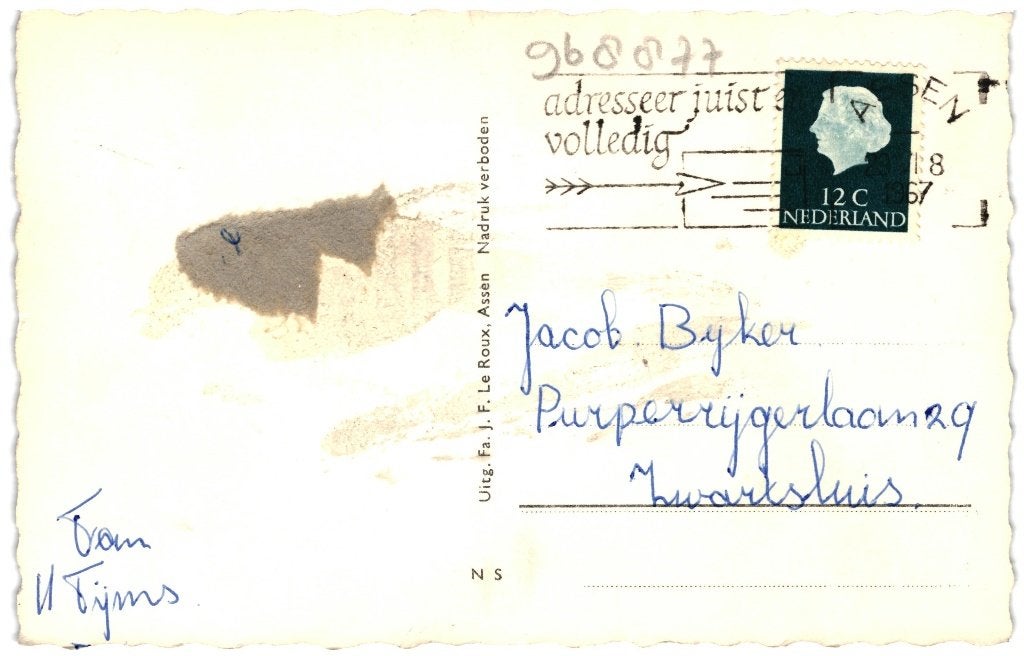 968877
adresseer juist en
volledig
ASSEN
18
1967
12 C
NEDERLAND
Uitg. Fa. J. F. Le Roux, Assen Nadruk verboden
Jacob Byker
Purperrijgerlaan 29
Zwartsluis.
Fam
H Tijms
N S